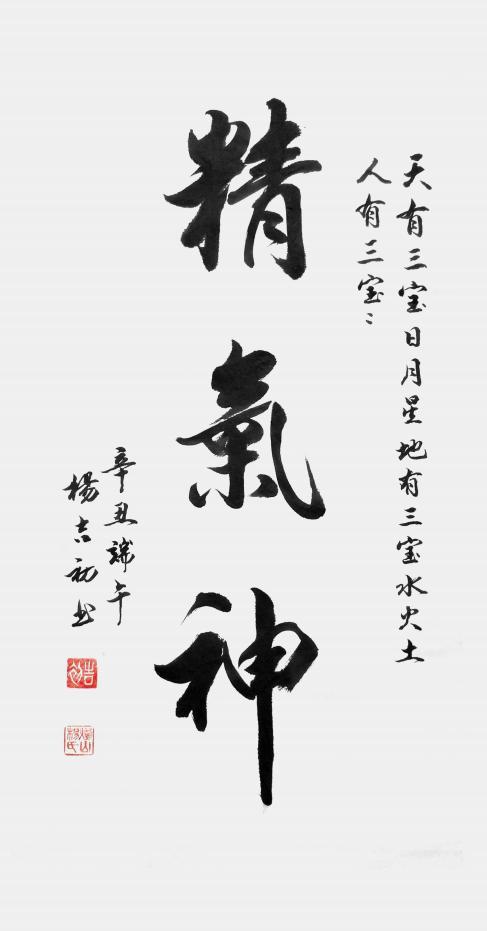 天有三宝日月星地有三宝水火土
人有三宝〻
精氣神
辛丑端午
楊吉初书
吉初